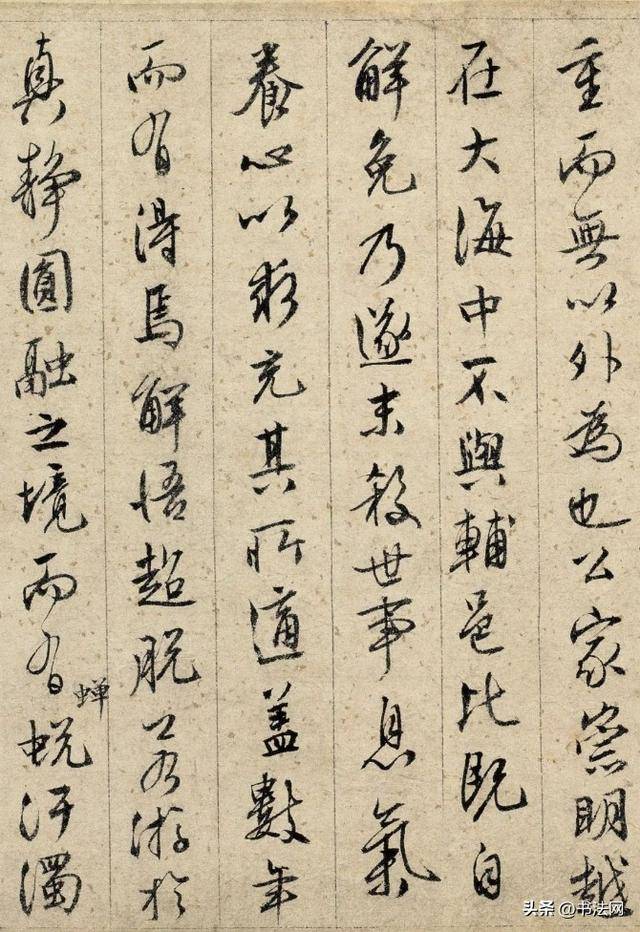 重而無以外為也公家崇明越
在大海中不與輔邑比既自
解免乃遂末殺世事息氣
養心以求充其所適蓋數年
而有得焉解悟超脫若游於
真靜圓融之境而有蝉蛻汙濁
头条 @书法网